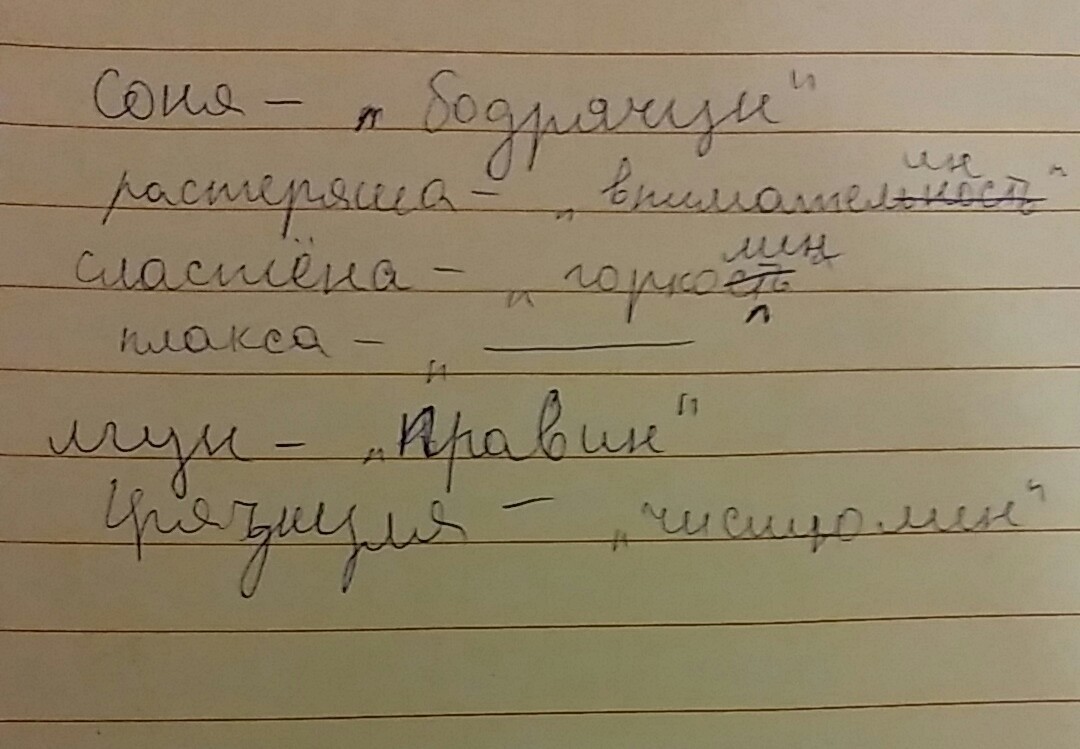 Соня – „бодрячун"
растеряша – „внимательность ин"
сластёна – „горкость мин
плакса – „ ———
лгун – „Правин"
Грязнуля – „чистюмин"